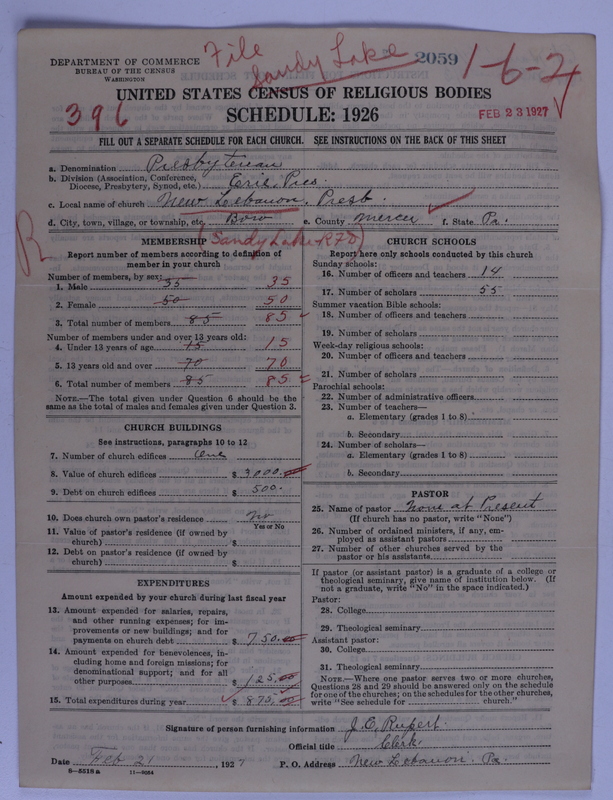 DEPARTMENT OF COMMERCE
BUREAU OF THE CENSUS
WASHINGTON
File
Sandy Lake
2059
1-6-2
396
UNITED STATES CENSUS OF RELIGIOUS BODIES
SCHEDULE: 1926
FEB 23 1927
FILL OUT A SEPARATE SCHEDULE FOR EACH CHURCH. SEE INSTRUCTIONS ON THE BACK OF THIS SHEET
a. Denomination Presbyterian
b. Division (Association, Conference, Diocese, Presbytery, Synod, etc.) Erie, Pres.
c. Local name of church New Lebanon, Presb.
d. City, town, village, or township, etc. Boro e. County Mercer f. State Pa.
(Sandy Lake-RFD)
R
MEMBERSHIP
Report number of members according to definition of
member in your church
Number of members, by sex:
1. Male 35 35
2. Female 50 50
3. Total number of members 85 85
Number of members under and over 13 years old:
4. Under 13 years of age 15 15
5. 13 years old and over 70 70
6. Total number of members 85 85
NOTE.—The total given under Question 6 should be the
same as the total of males and females given under Question 3.
CHURCH BUILDINGS
See instructions, paragraphs 10 to 12
7. Number of church edifices One
8. Value of church edifices $ 3000.00
9. Debt on church edifices $ 500.
10. Does church own pastor's residence No
Yes or No
11. Value of pastor's residence (if owned by
church) $
12. Debt on pastor's residence (if owned by
church) $
EXPENDITURES
Amount expended by your church during last fiscal year
13. Amount expended for salaries, repairs,
and other running expenses; for im-
provements or new buildings; and for
payments on church debt $ 750.00
14. Amount expended for benevolences, in-
cluding home and foreign missions; for
denominational support; and for all
other purposes $ 125.00
15. Total expenditures during year $ 875.00
CHURCH SCHOOLS
Report here only schools conducted by this church
Sunday schools:
16. Number of officers and teachers 14
17. Number of scholars 55
Summer vacation Bible schools:
18. Number of officers and teachers
19. Number of scholars
Week-day religious schools:
20. Number of officers and teachers
21. Number of scholars
Parochial schools:
22. Number of administrative officers
23. Number of teachers—
a. Elementary (grades 1 to 8)
b. Secondary
24. Number of scholars—
a. Elementary (grades 1 to 8)
b. Secondary
PASTOR
25. Name of pastor None at Present
(If church has no pastor, write "None")
26. Number of ordained ministers, if any, em-
ployed as assistant pastors
27. Number of other churches served by the
pastor or his assistants
If pastor (or assistant pastor) is a graduate of a college or
theological seminary, give name of institution below. (If
not a graduate, write "No" in the space indicated.)
Pastor:
28. College
29. Theological seminary
Assistant pastor:
30. College
31. Theological seminary
NOTE.—Where one pastor serves two or more churches,
Questions 28 and 29 should be answered only on the schedule
for one of the churches; on the schedules for the other churches,
write "See schedule for church."
Signature of person furnishing information J. C. Rupert.
Official title Clerk
Date Feb 21, 1927 P. O. Address New Lebanon. Pa.
8—5518 a 11—9064